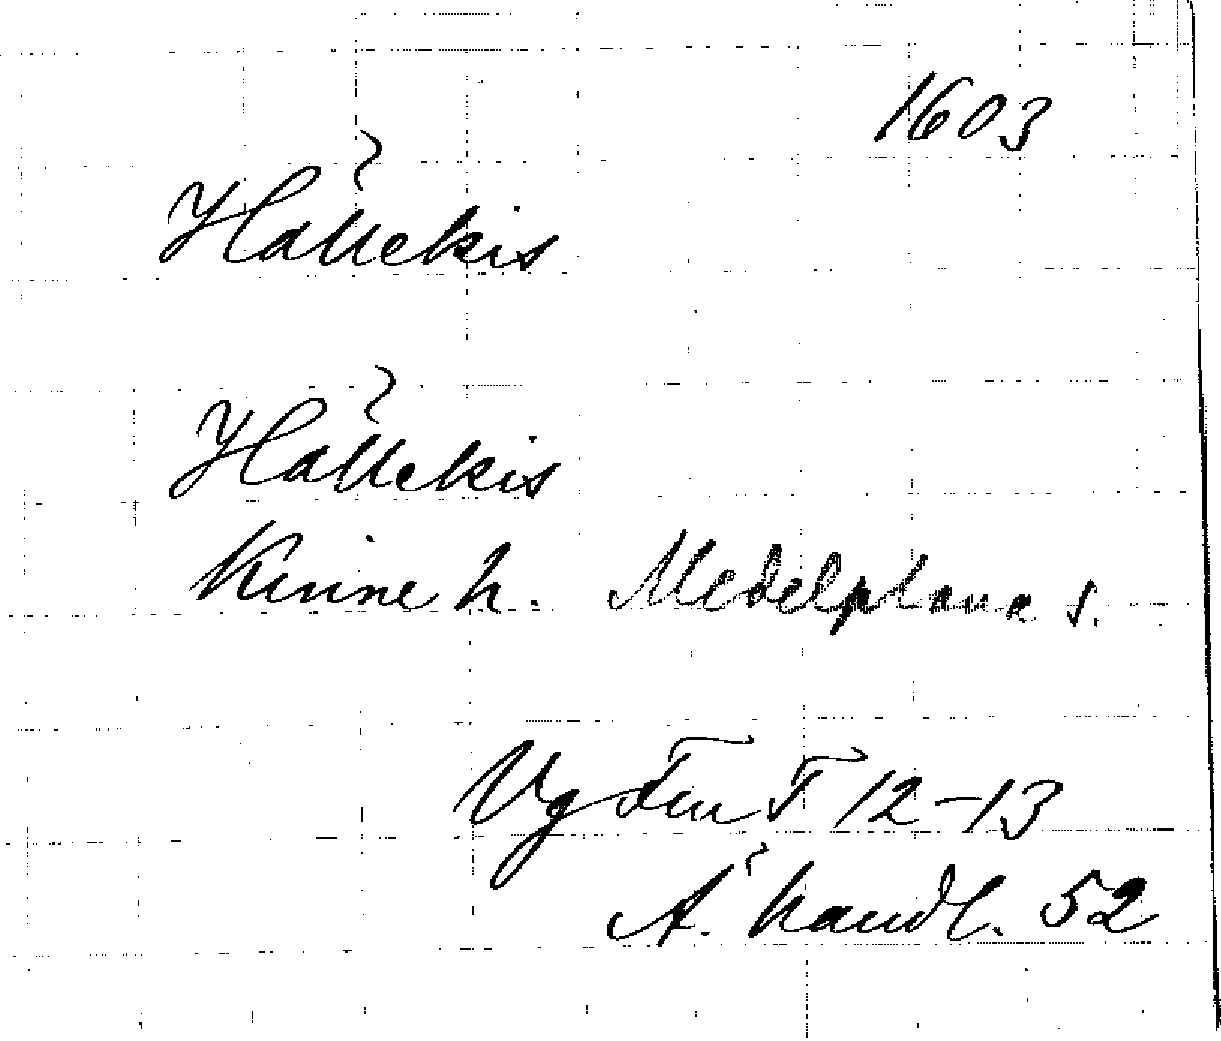 1603
Hällekis
Hällekis
Kinne h. Medelplana s.
Vg 12-13
A. handl. 52